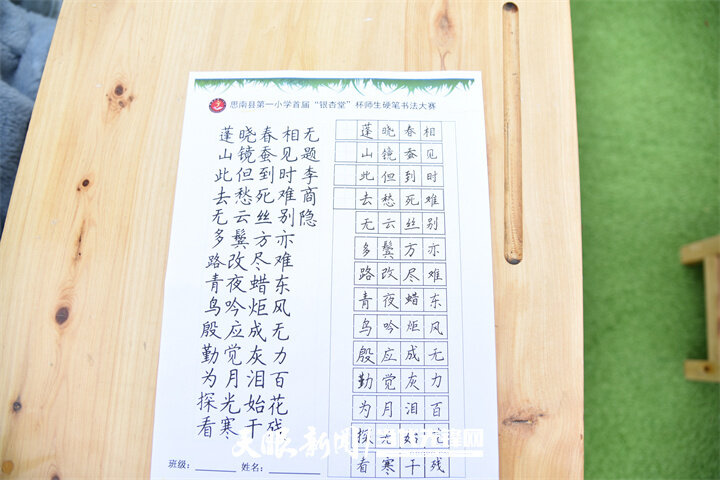 思南县第一小学首届“银杏堂”杯师生硬笔书法大赛
无题李商隐
相见时难别亦难东风无力百花残
春蚕到死丝方尽蜡炬成灰泪始干
晓镜但愁云鬓改夜吟应觉月光寒
蓬山此去无多路青鸟殷勤为探看
相见时难别亦难东风无力百花残
春蚕到死丝方尽蜡炬成灰泪始干
晓镜但愁云鬓改夜吟应觉月光寒
蓬山此去无多路青鸟殷勤为探看
班级： 姓名：
天眼新闻